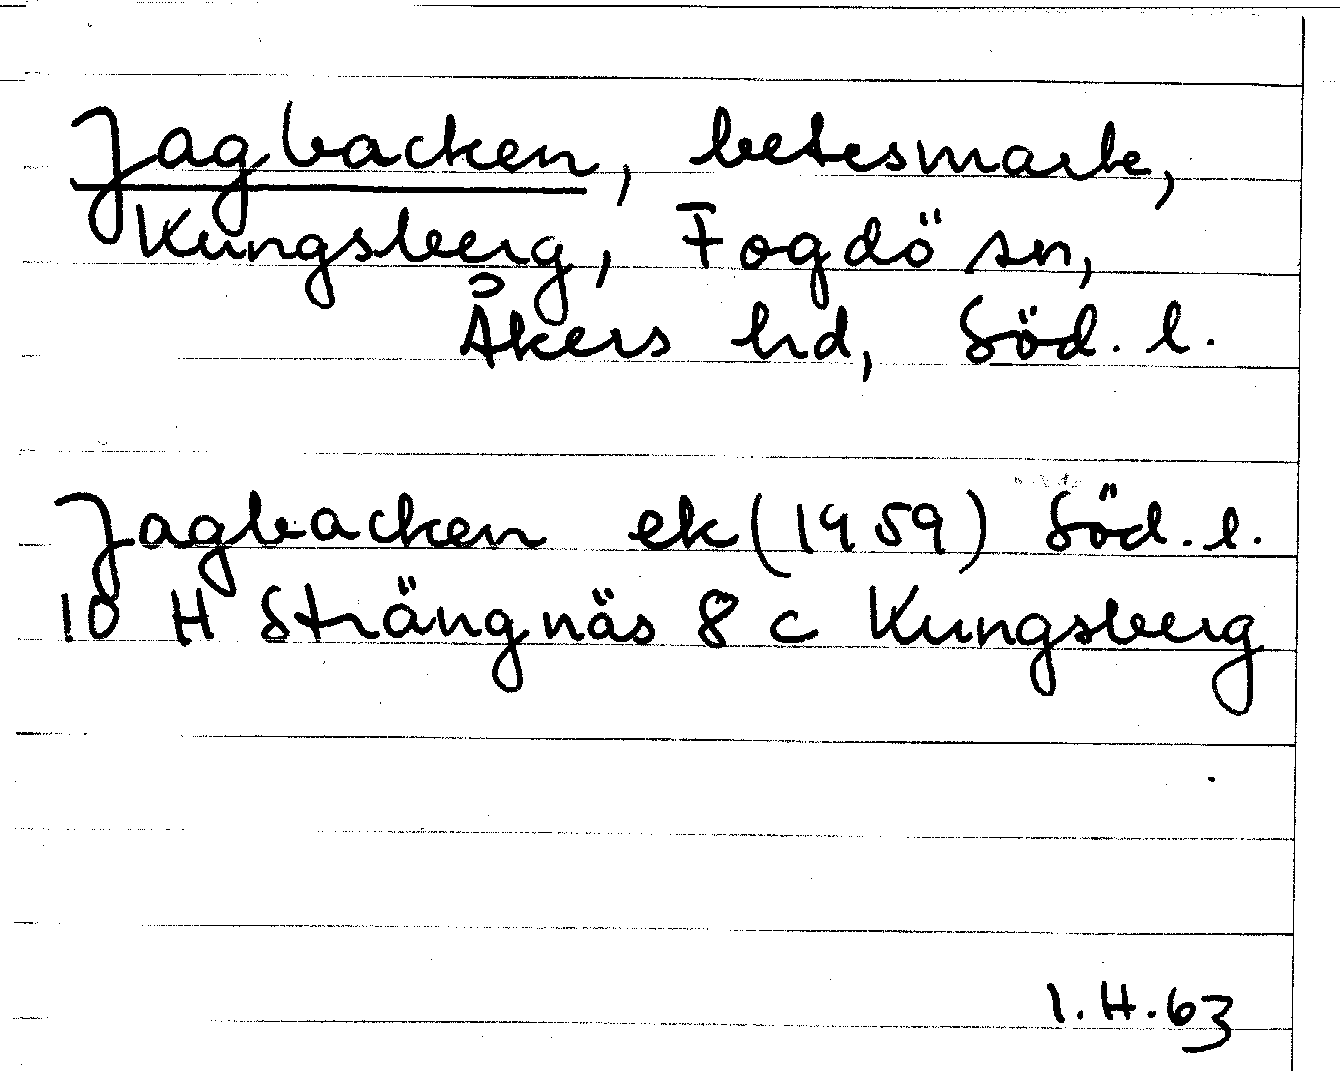 Jagbacken, betesmark,
Kungsberg, Fogdö sn,
Åkers hd, Söd. l.
Jagbacken ek (1959) Söd. l.
10 H Strängnäs 8 c Kungsberg
I.H.63